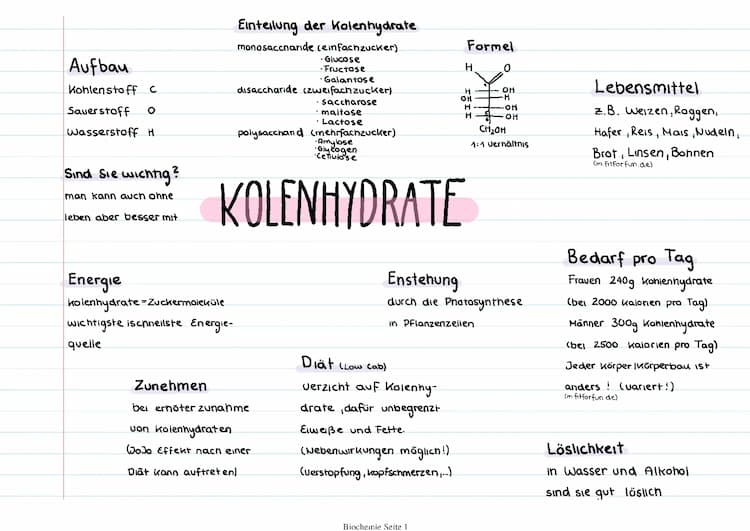 Einteilung der Kolenhydrate
monosaccharide (einfachzucker)
· Glucose
· Fructose
· Galantose
disaccharide (zweifachzucker)
· saccharose
· maltose
· Lactose
polysaccharid (mehrfachzucker)
· Amylose
· Glykogen
· Cellulose
Formel
H O
H OH
OH H
H OH
H OH
CH2OH
1:1 verhältnis
Aufbau
Kohlenstoff C
Sauerstoff O
Wasserstoff H
Lebensmittel
z.B. Weizen, Roggen,
Hafer, Reis, Mais, Nudeln,
Brot, Linsen, Bohnen
(m fitforfun.de)
Sind Sie wichtig?
man kann auch ohne
leben aber besser mit
KOLENHYDRATE
Energie
Kolenhydrate = Zuckermoleküle
wichtigste | schnellste Energie-
quelle
Enstehung
durch die Photosynthese
in Pflanzenzellen
Bedarf pro Tag
Frauen 240g Kohlenhydrate
(bei 2000 kalorien pro Tag)
Männer 300g Kohlenhydrate
(bei 2500 kalorien pro Tag)
Jeder Körper | Körperbau ist
anders! (variert!)
(m fitforfun.de)
Zunehmen
bei erhöter zunahme
von kolenhydraten
(JoJo Effekt nach einer
Diät kann auftreten)
Diät (Low Cab)
verzicht auf Kolenhy-
drate, dafür unbegrenzt
Eiweiße und Fette.
(Nebenwirkungen möglich!)
(Verstopfung, Kopfschmerzen,..)
Löslichkeit
in Wasser und Alkohol
sind sie gut löslich
Biochemie Seite 1